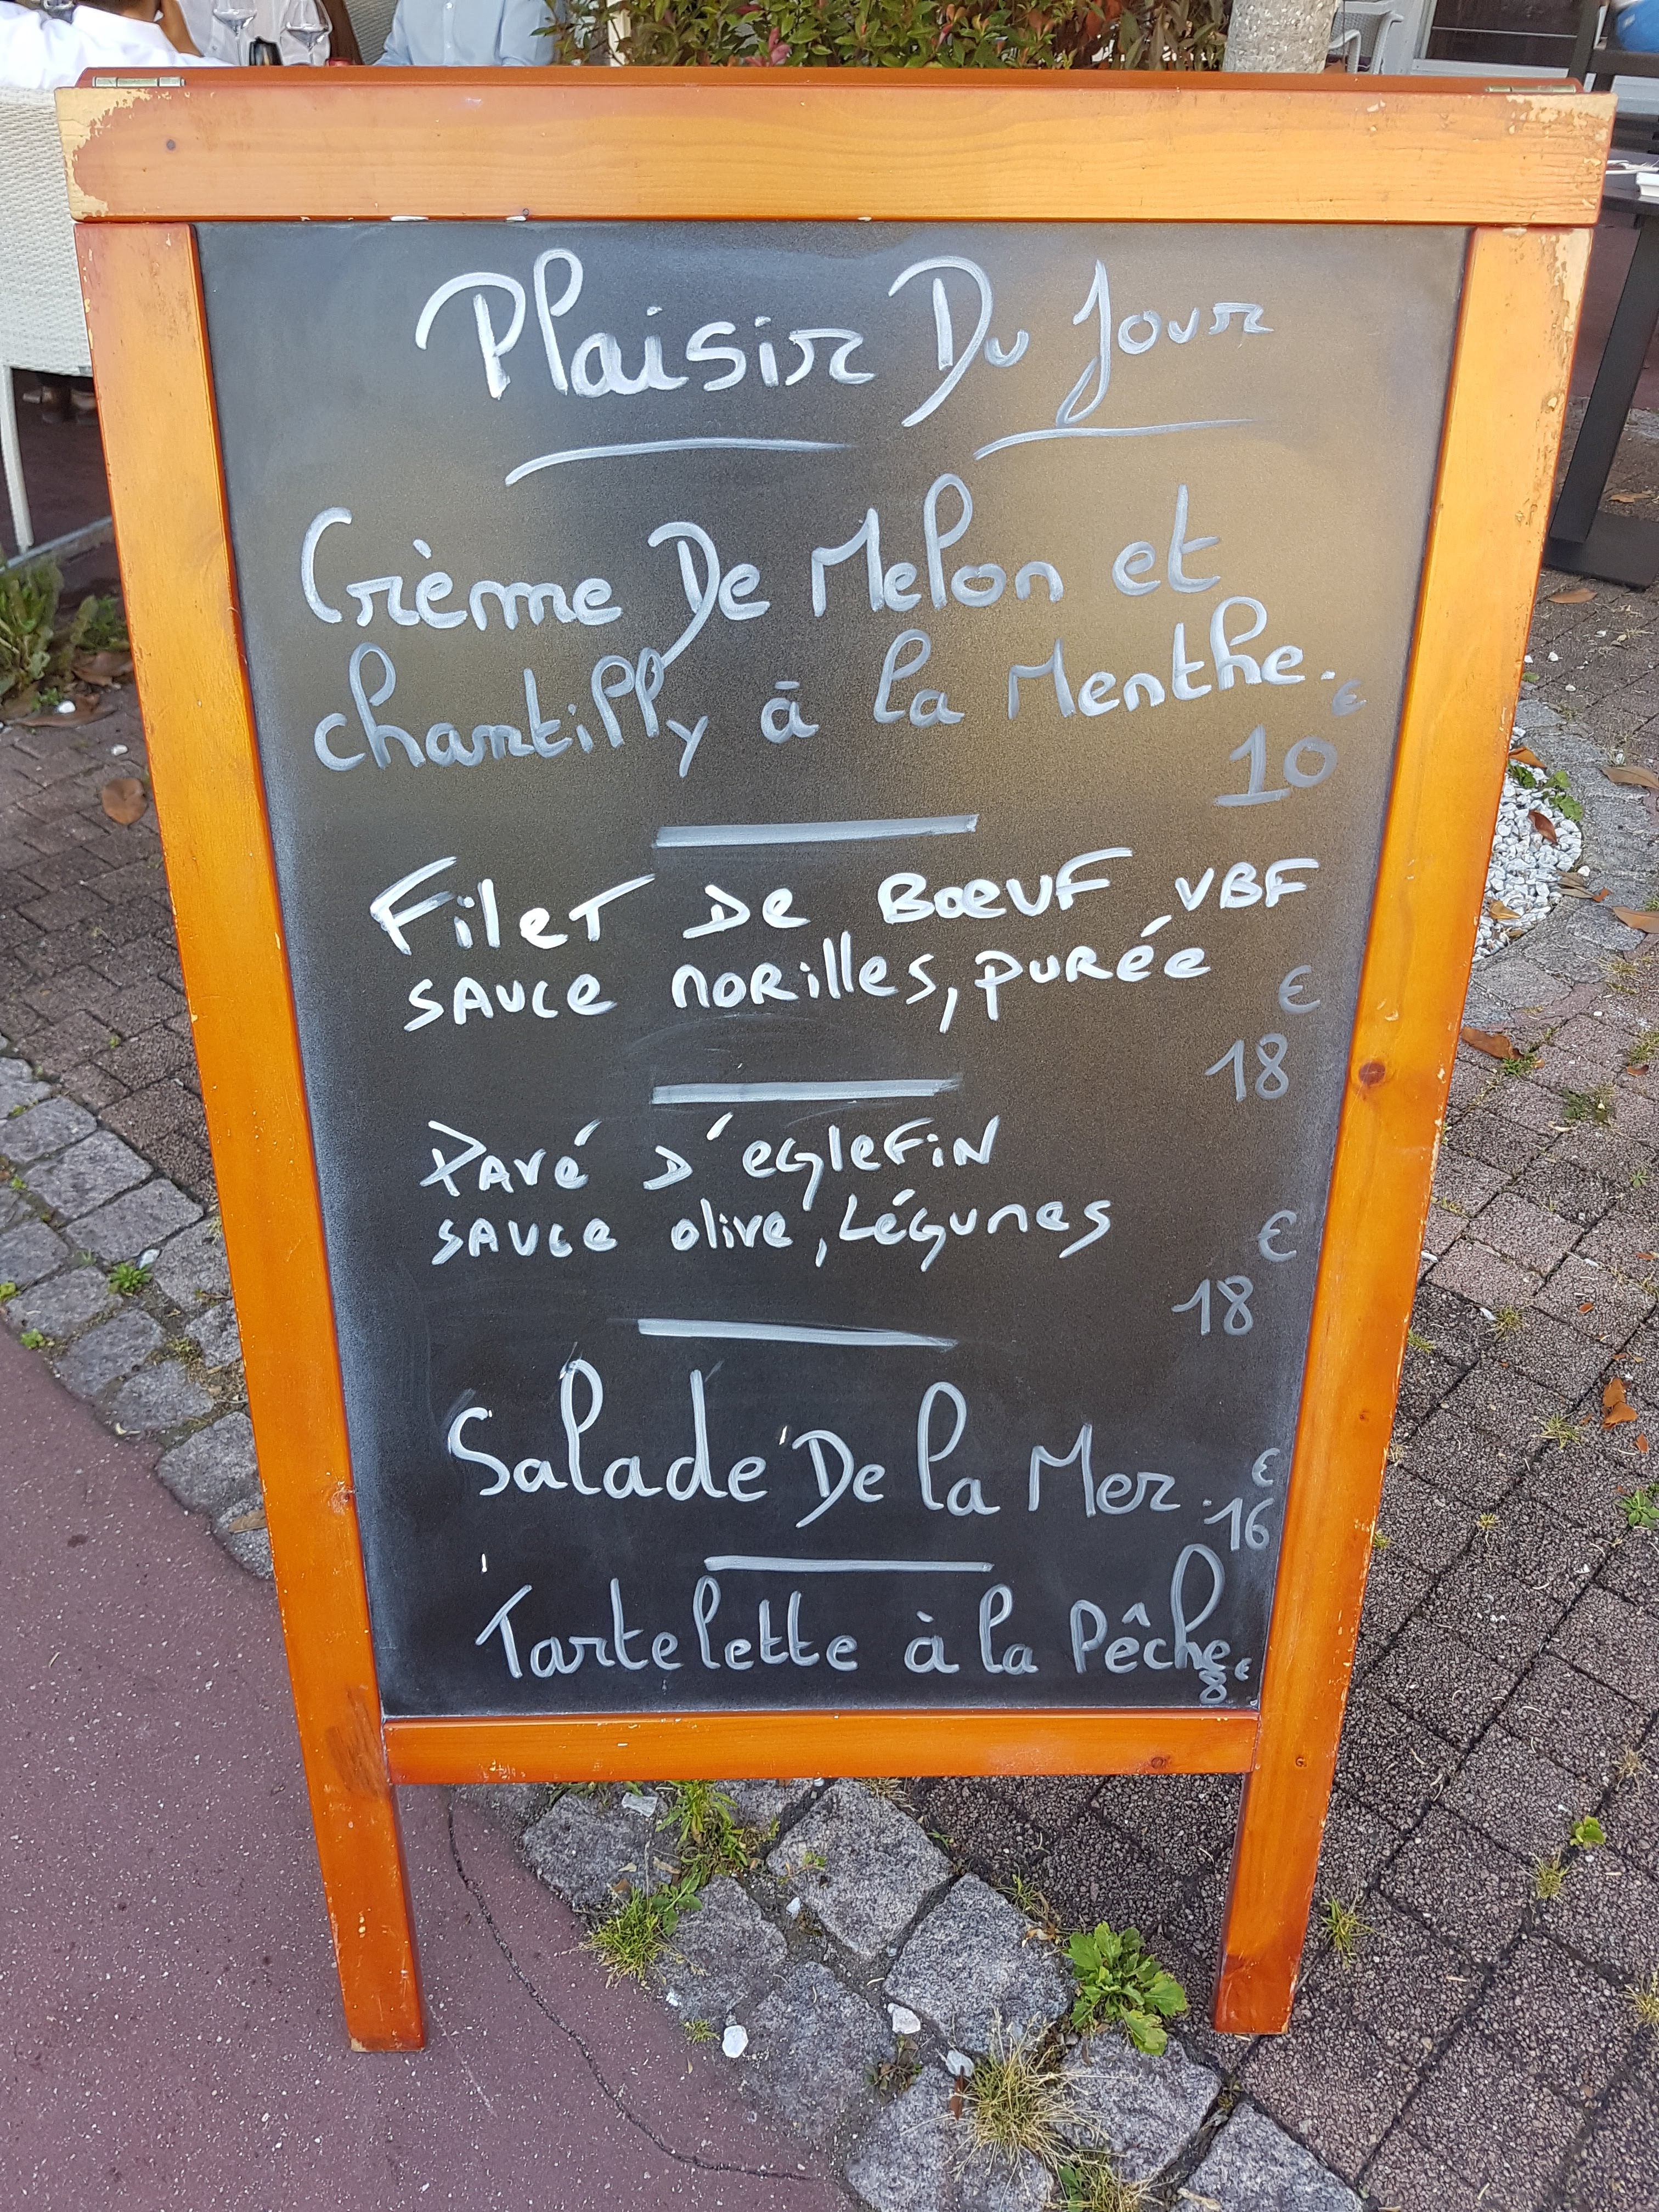 Plaisir Du Jour
Crème De Melon et
chantilly à la Menthe.
10 €
Filet De Bœuf VBF
sauce morilles, purée
18 €
Pavé D'eglefin
sauce olive, Légumes
18 €
Salade De la Mer.
16 €
Tartelette à la Pêche.
8 €